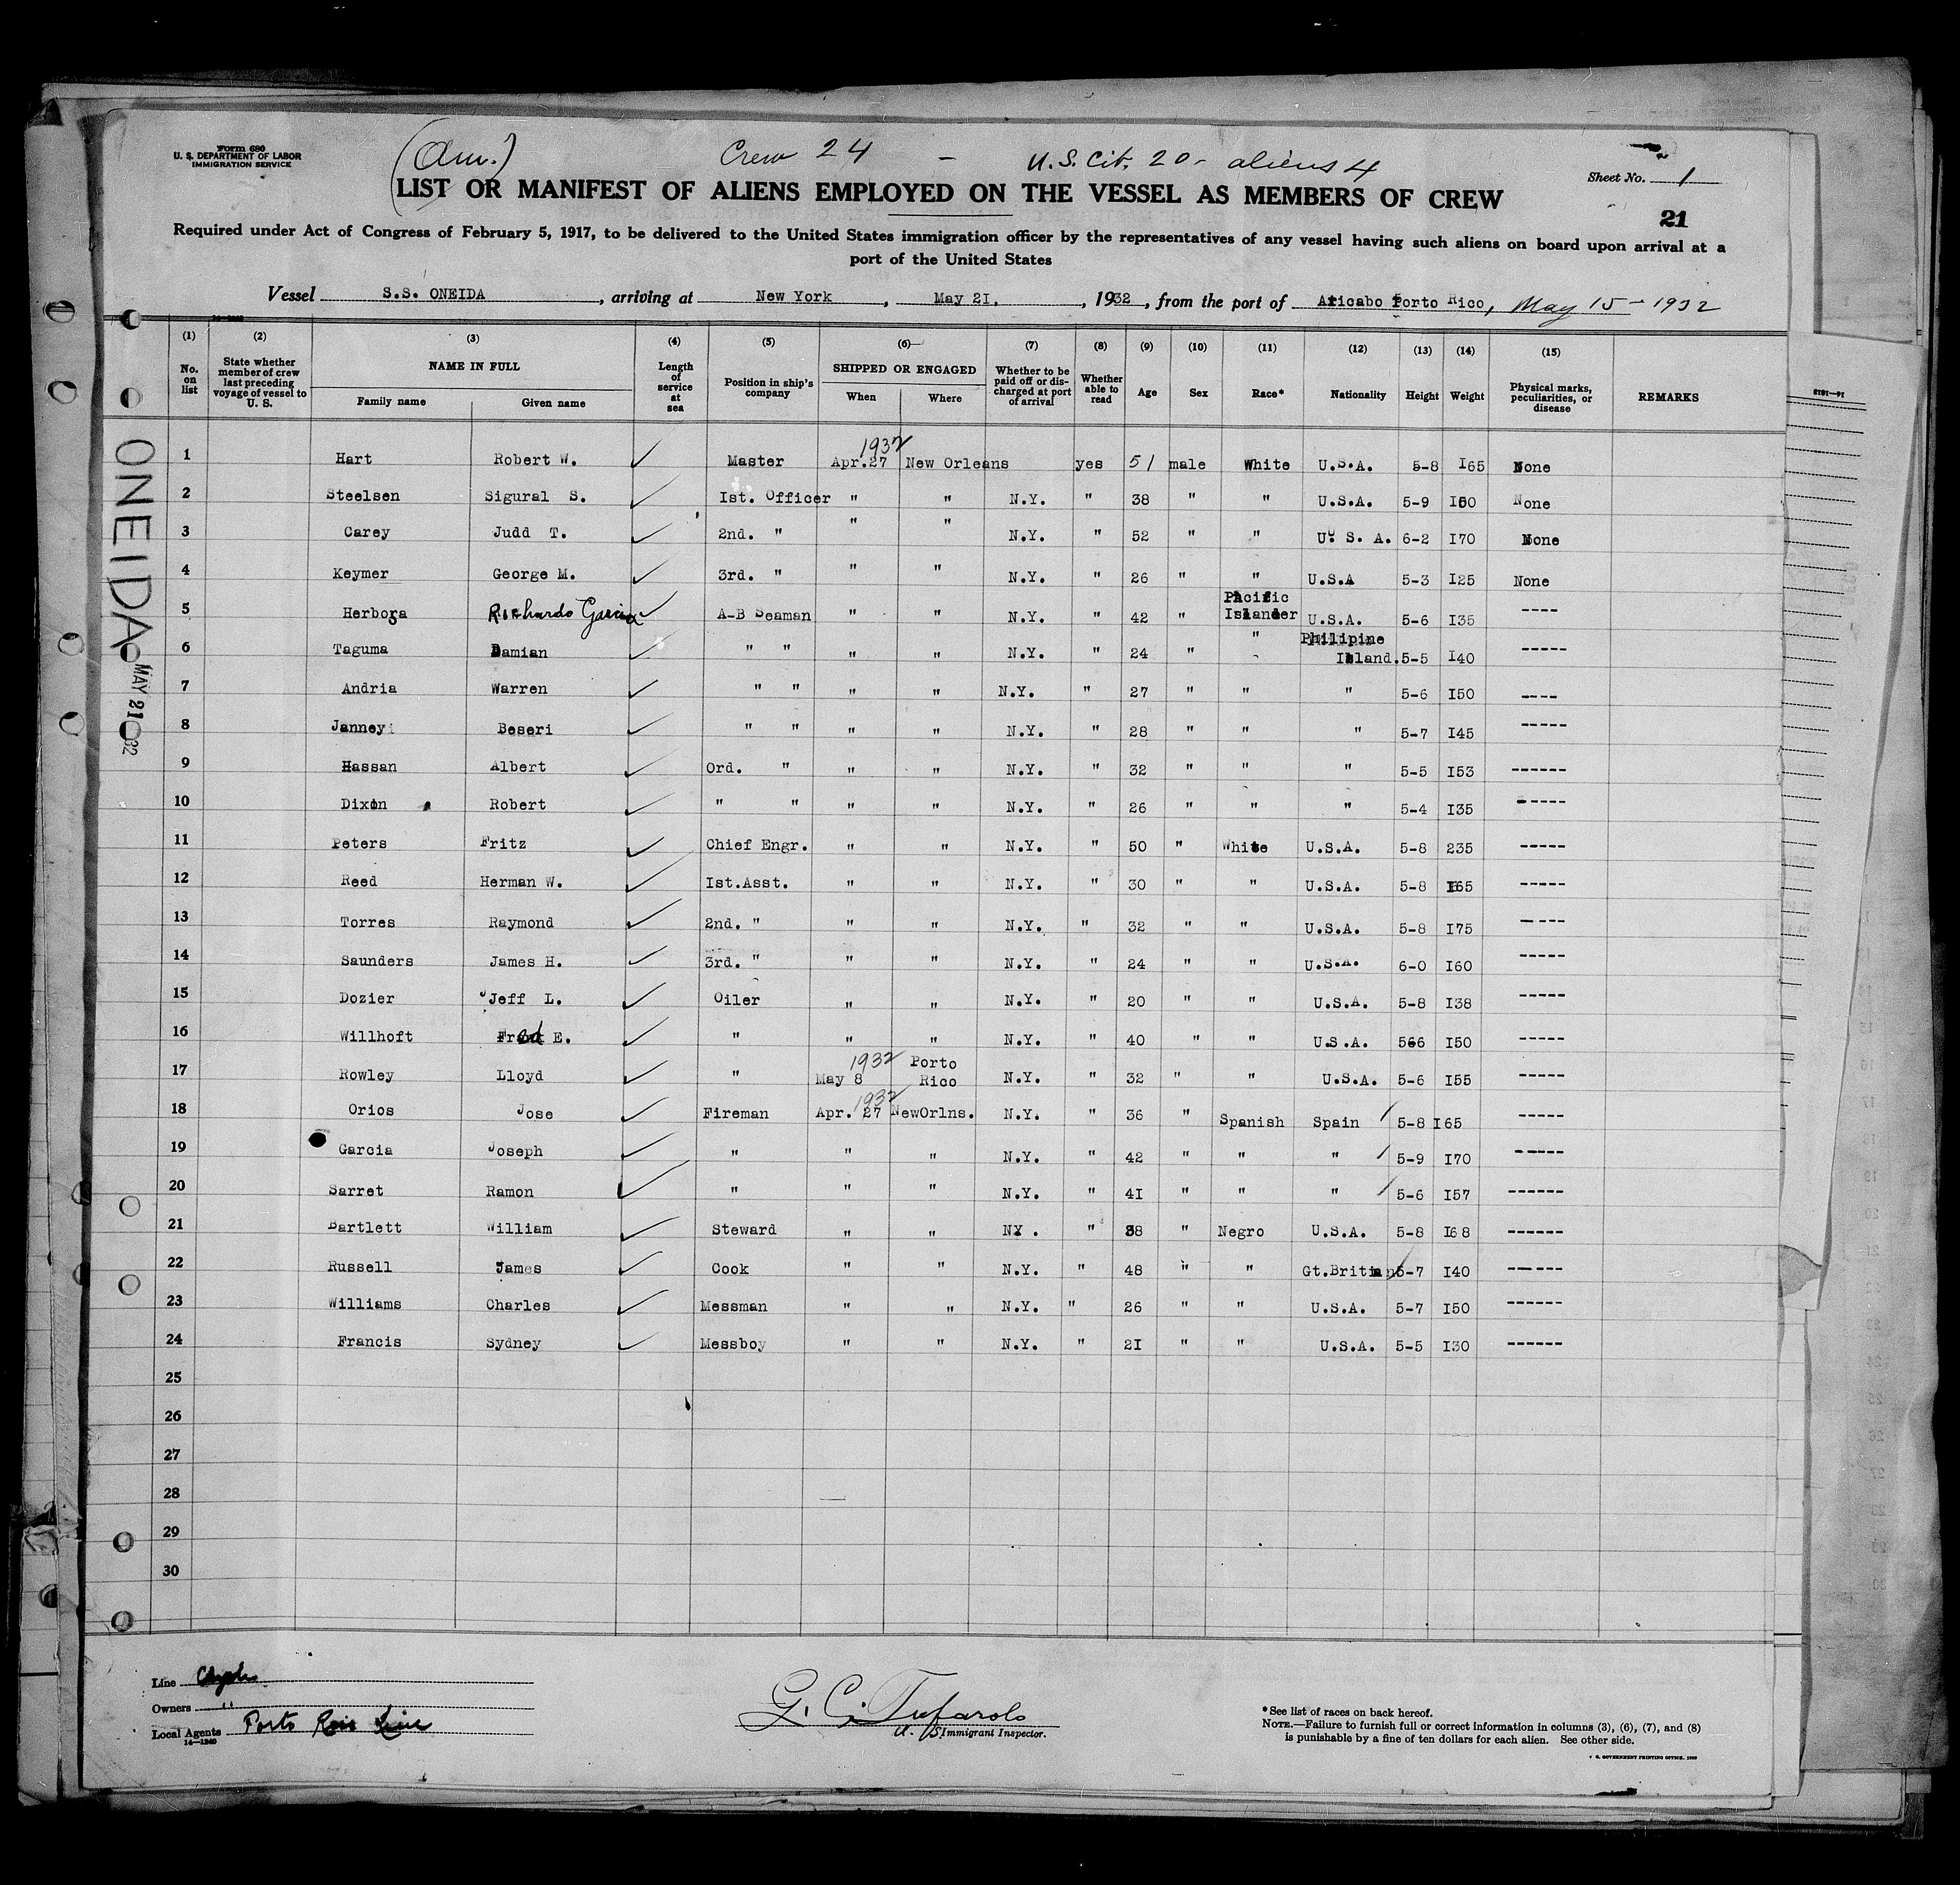 Form 680
U. S. DEPARTMENT OF LABOR
IMMIGRATION SERVICE
(Am.) Crew 24 - U.S. Cit. 20 - aliens 4
Sheet No. 1
LIST OR MANIFEST OF ALIENS EMPLOYED ON THE VESSEL AS MEMBERS OF CREW
21
Required under Act of Congress of February 5, 1917, to be delivered to the United States immigration officer by the representatives of any vessel having such aliens on board upon arrival at a
port of the United States
Vessel S.S. ONEIDA, arriving at New York, May 2I, 1932, from the port of Aricabo Porto Rico, May 15 - 1932
(1) (2) (3) (4) (5) (6) (7) (8) (9) (10) (11) (12) (13) (14) (15)
No. on list
State whether member of crew last preceding voyage of vessel to U. S.
NAME IN FULL
Family name Given name
Length of service at sea
Position in ship's company
SHIPPED OR ENGAGED
When Where
Whether to be paid off or discharged at port of arrival
Whether able to read
Age
Sex
Race*
Nationality
Height
Weight
Physical marks, peculiarities, or disease
REMARKS
ONEIDA MAY 21 32
1 Hart Robert W. ✓ Master Apr.27 1932 New Orleans yes 51 male White U.S.A. 5-8 I65 None
2 Steelsen Sigural S. ✓ Ist. Officer " " N.Y. " 38 " " U.S.A. 5-9 I60 None
3 Carey Judd T. ✓ 2nd. " " " N.Y. " 52 " " U. S. A. 6-2 I70 None
4 Keymer George M. ✓ 3rd. " " " N.Y. " 26 " " U.S.A 5-3 I25 None
5 Herbosa Richardo Garcia ✓ A-B Seaman " " N.Y. " 42 " Pacific Islander U.S.A. 5-6 I35 ----
6 Taguma Damian ✓ " " " " N.Y. " 24 " " Philipine Island. 5-5 I40 -----
7 Andria Warren ✓ " " " " N.Y. " 27 " " " 5-6 I50 ----
8 Janney Beseri ✓ " " " " N.Y. " 28 " " " 5-7 I45 -----
9 Hassan Albert ✓ Ord. " " " N.Y. " 32 " " " 5-5 I53 ------
10 Dixon Robert ✓ " " " " N.Y. " 26 " " " 5-4 I35 -----
11 Peters Fritz ✓ Chief Engr. " " N.Y. " 50 " White U.S.A. 5-8 235 -----
12 Reed Herman W. ✓ Ist.Asst. " " N.Y. " 30 " " U.S.A. 5-8 I65 -----
13 Torres Raymond ✓ 2nd. " " " N.Y. " 32 " " U.S.A. 5-8 I75 -----
14 Saunders James H. ✓ 3rd. " " " N.Y. " 24 " " U.S.A. 6-0 I60 -----
15 Dozier Jeff L. ✓ Oiler " " N.Y. " 20 " " U.S.A. 5-8 I38 -----
16 Willhoft Fred E. ✓ " " " N.Y. " 40 " " U.S.A. 5-6 I50 -----
17 Rowley Lloyd ✓ " May 8 1932 Porto Rico N.Y. " 32 " " U.S.A. 5-6 I55 -----
18 Orios Jose ✓ Fireman Apr. 27 1932 NewOrlns. N.Y. " 36 " Spanish Spain 5-8 I65 -----
19 Garcia Joseph ✓ " " " N.Y. " 42 " " " 5-9 I70 -----
20 Sarret Ramon ✓ " " " N.Y. " 4I " " " 5-6 I57 ------
21 Bartlett William ✓ Steward " " NY. " 38 " Negro U.S.A. 5-8 I68 ------
22 Russell James ✓ Cook " " N.Y. " 48 " " Gt.Britian 5-7 I40 ------
23 Williams Charles ✓ Messman " " N.Y. " 26 " " U.S.A. 5-7 I50 ------
24 Francis Sydney ✓ Messboy " " N.Y. " 2I " " U.S.A. 5-5 I30 ------
25
26
27
28
29
30
Line Clyde
Owners "
Local Agents Porto Rico Line
14—1240
G. C. Tufarolo
U. S. Immigrant Inspector.
*See list of races on back hereof.
NOTE.—Failure to furnish full or correct information in columns (3), (6), (7), and (8)
is punishable by a fine of ten dollars for each alien. See other side.